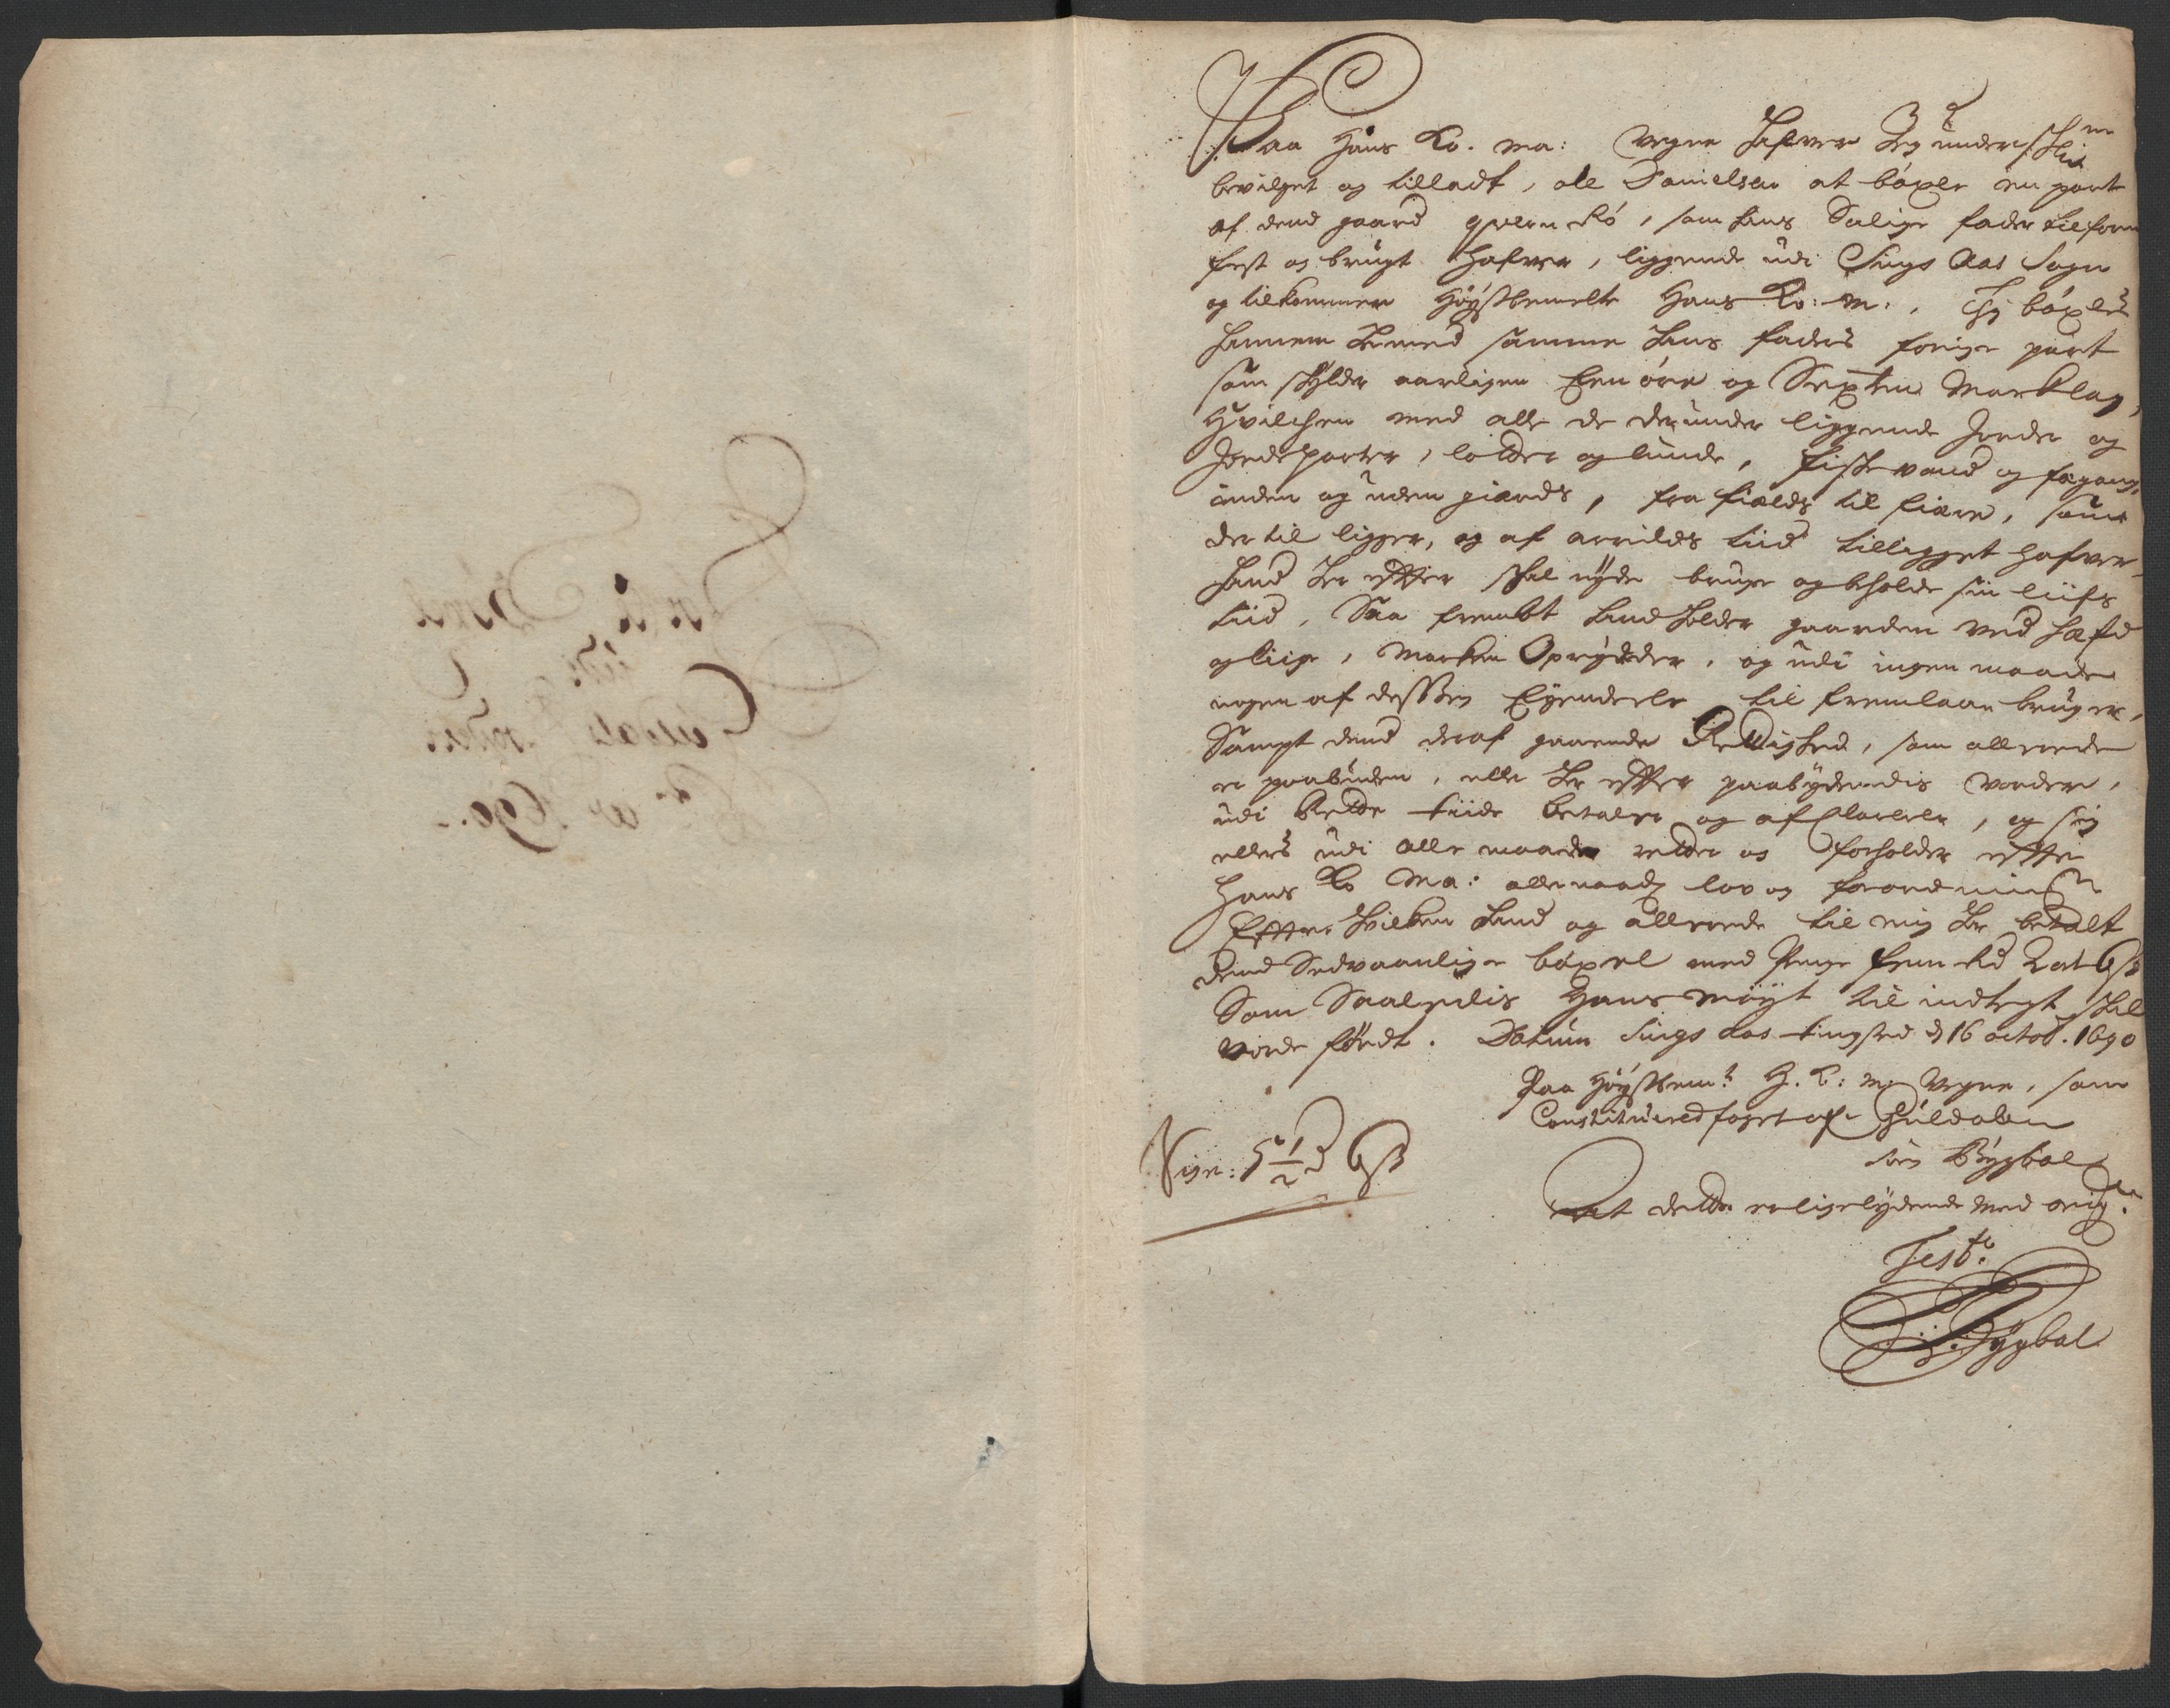 Paa Hans Ko. Ma: Vegne Hafver Jeg undersch:ne
bevilget og tilladt, ole Danielsen at böxle en part
af dend gaard qvernRö, som hans Salige fader tilforn
fest og brugt hafver, liggende udi Sings Aas Sogn
og tilkommer Höystbemelte Hans Ko: M:. Thj böxles
hannem hermed samme hans faders forige part
som skylder aarligen Een öre og Sexten Marklag,
Hvilchen med alle de derunder liggende Jorder og
Jordeparter, lotter og lunde, fiskevand og fægang,
inden og uden giærds, fra fields til fiære, som
der til ligger, og af arrilds tiid tilligget hafver
hand her effter skal nyde bruge og beholde sin liifs
tiid, Saa frembt hand holder gaarden ved hæfd
og liige, Marken Oprydder, og udi ingen maade
nogen af dessen Eyendeele til fremlaan bruger,
Sampt dend deraf gaaende Rettighed, som allerede
er paabuden, eller her effter paabydendis vorder,
udi Rette tiide betaler og afClarerer, og sig
ellers udi alle maader retter og forholder effter
Hans Ko Ma: allernaad: lov og forordning
Effter hvilken hand og allerede til mig her betalt
dend Sedvaanlige böxel med Penge fem Rd 2 ort 6 s
Som Saaledis Hans Mayt til indtegt skal
vorde fördt. Datum Sings Aas tingsted d 16 octob. 1690
Paa Höystbemt H. K: M Vegne, som
Constituered foget ofr Guldalen
Sörg Bygbal
Siger: 5 1/2 d 6 s
At dette er ligelydende med orig:
Test.
S. Bygbal